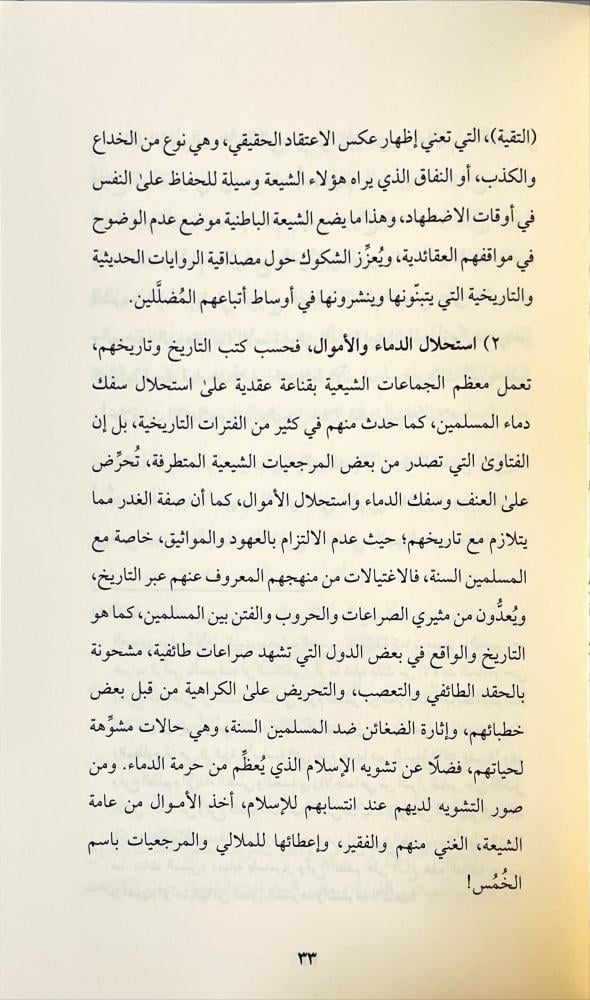 (التقية)، التي تعني إظهار عكس الاعتقاد الحقيقي، وهي نوع من الخداع
والكذب، أو النفاق الذي يراه هؤلاء الشيعة وسيلة للحفاظ علىٰ النفس
في أوقات الاضطهاد، وهذا ما يضع الشيعة الباطنية موضع عدم الوضوح
في مواقفهم العقائدية، ويُعزِّز الشكوك حول مصداقية الروايات الحديثية
والتاريخية التي يتبنّونها وينشرونها في أوساط أتباعهم المُضلَّلين.
٢) استحلال الدماء والأموال، فحسب كتب التاريخ وتاريخهم،
تعمل معظم الجماعات الشيعية بقناعة عقدية علىٰ استحلال سفك
دماء المسلمين، كما حدث منهم في كثير من الفترات التاريخية، بل إن
الفتاوىٰ التي تصدر من بعض المرجعيات الشيعية المتطرفة، تُحرِّض
علىٰ العنف وسفك الدماء واستحلال الأموال، كما أن صفة الغدر مما
يتلازم مع تاريخهم؛ حيث عدم الالتزام بالعهود والمواثيق، خاصة مع
المسلمين السنة، فالاغتيالات من منهجهم المعروف عنهم عبر التاريخ،
ويُعدُّون من مثيري الصراعات والحروب والفتن بين المسلمين، كما هو
التاريخ والواقع في بعض الدول التي تشهد صراعات طائفية، مشحونة
بالحقد الطائفي والتعصب، والتحريض علىٰ الكراهية من قبل بعض
خطبائهم، وإثارة الضغائن ضد المسلمين السنة، وهي حالات مشوِّهة
لحياتهم، فضلًا عن تشويه الإسلام الذي يُعظِّم من حرمة الدماء. ومن
صور التشويه لديهم عند انتسابهم للإسلام، أخذ الأموال من عامة
الشيعة، الغني منهم والفقير، وإعطائها للملالي والمرجعيات باسم
الخُمُس!
٣٣